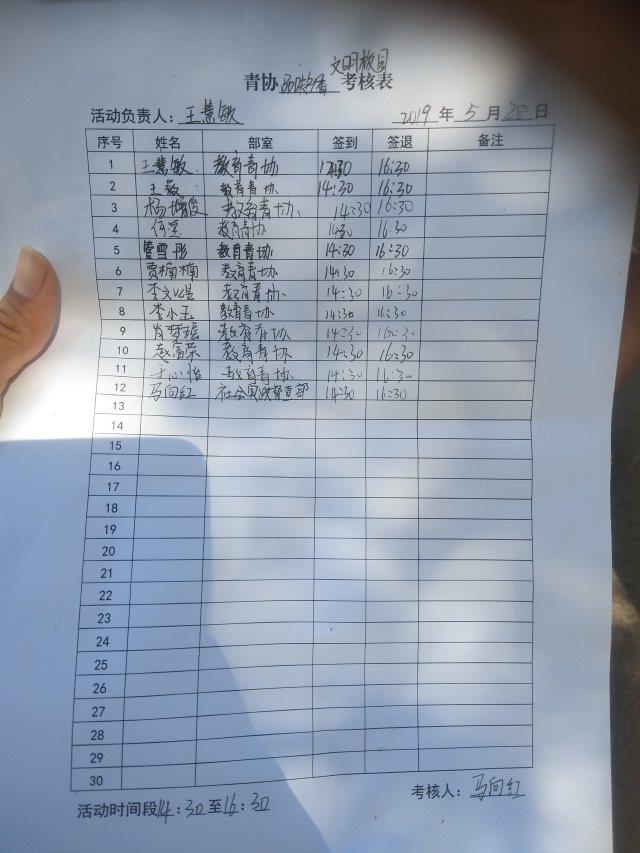 文明校园
青协 考核表
活动负责人：王慧敏 2019 年 5 月 28 日
序号 姓名 部室 签到 签退 备注
1 王慧敏 教育青协 14:30 16:30
2 王薇 教育青协 14:30 16:30
3 杨 教育青协 14:30 16:30
4 教育青协 1430 16:30
5 管雪彤 教育青协 14:30 16:30
6 贾楠楠 教育青协 14:30 16:30
7 李文 教育青协 14:30 16:30
8 李小玉 教育青协 14:30 16:30
9 肖梦瑶 教育青协 14:30 16:30
10 赵富荣 教育青协 14:30 16:30
11 王心怡 教育青协 14:30 16:30
12 马向红 社会实践督查部 14:30 16:30
13
14
15
16
17
18
19
20
21
22
23
24
25
26
27
28
29
30
活动时间段14：30至16：30 考核人：马向红